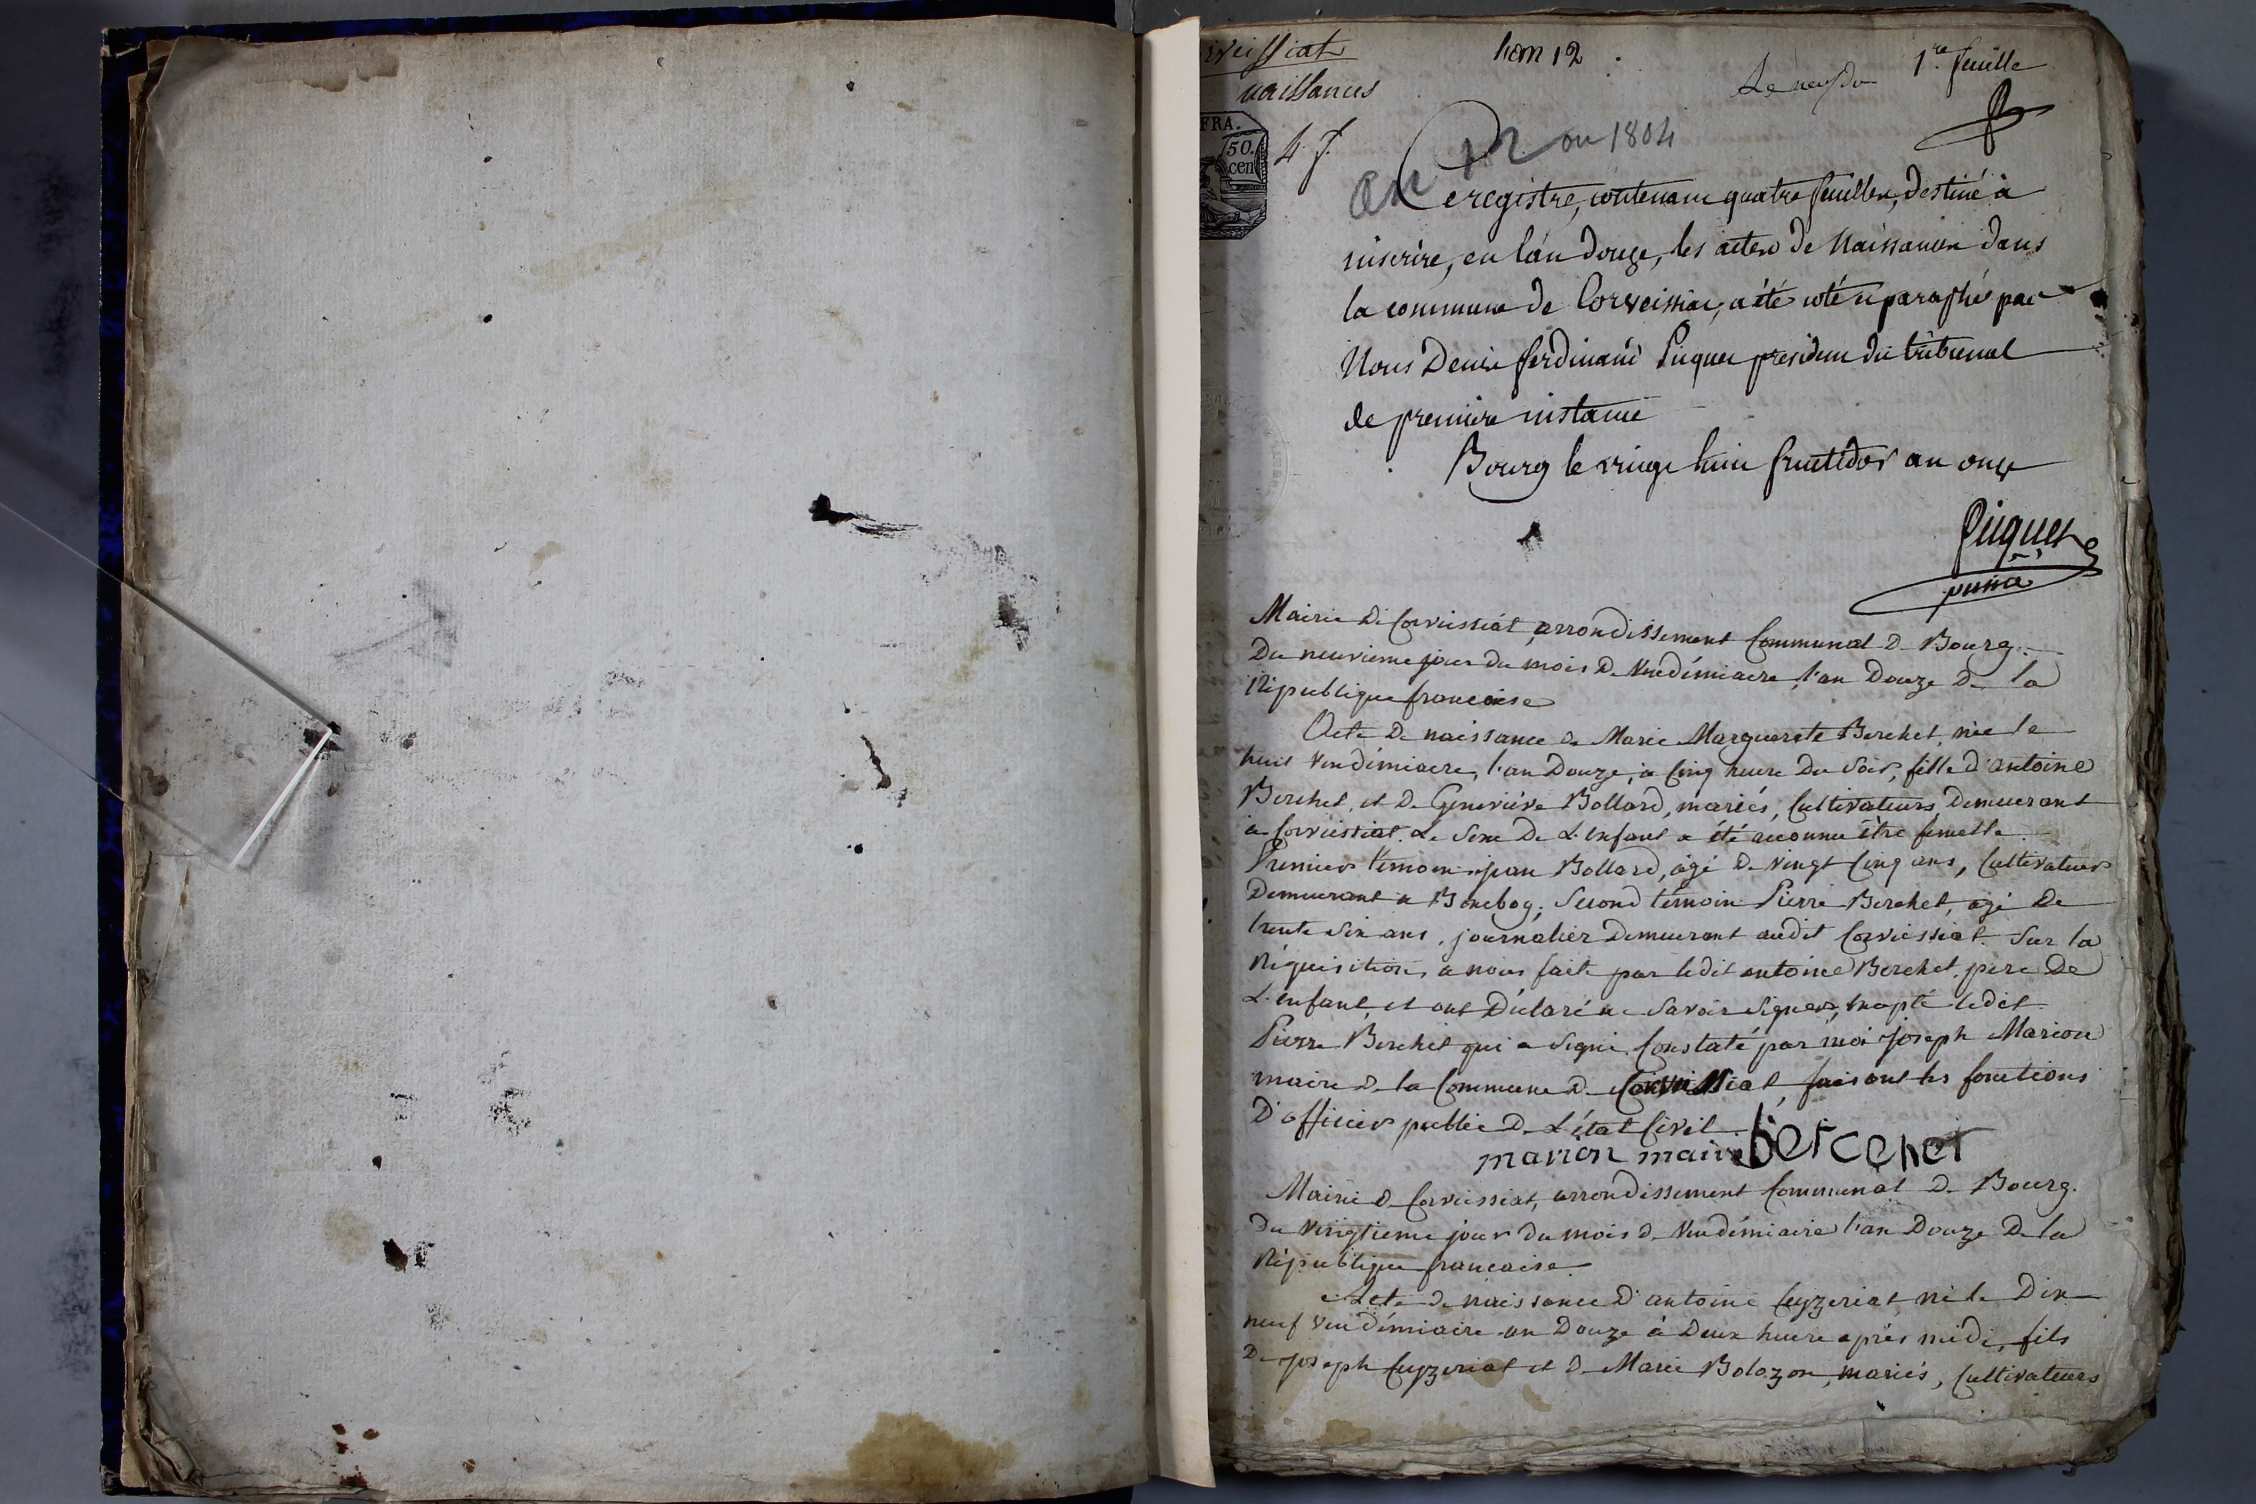 l'an 12
1re feuille
naissances
FRA.
50.
cen
4 f.
an 12 ou 1804
Ce registre, contenant quatre feuilles, destiné à
inscrire, en l'an douze, les actes de Naissances dans
la commune de Corveissiat, a été coté et paraphé par
Nous Denis ferdinand Piquet president du tribunal
de premiere instance
Bourg le vingt huit fructidor an onze
Piquet
Mairie de Corveissiat, arrondissement Communal de Bourg.
Du neuvieme jour du mois de Vendémiaire, l'an Douze de la
République francaise
Acte de naissance de Marie Marguerite Berchet, née le
huit Vendémiaire, l'an Douze, à Cinq heure du Soir, fille d'antoine
Berchet, et de Geneviève Bollard, mariés, Cultivateurs Demeurant
à Corveissiat. Le Sexe de L'enfant a été reconnu être femelle.
Premier témoin jean Bollard, âgé de vingt Cinq ans, Cultivateur
Demeurant a ; Second témoin Pierre Berchet, agé de
trente Six ans, journalier Demeurant audit Corveissiat. Sur la
Réquisition a nous faite par ledit antoine Berchet, pere de
L'enfant, et ont Déclaré ne Savoir Signer, excepté ledit
Pierre Berchet qui a Signé. Constaté par moi joseph Marion
maire de la Commune de Corveissiat, faisant les fonctions
D'officier public de L'état Civil.
marion maire bercehet
Mairie de Corveissiat, arrondissement Communal de Bourg.
Du vingtieme jour du mois de Vendémiaire l'an Douze de la
République francaise.
Acte de naissance d'antoine Ceyzeriat, né le Dix
neuf Vendémiaire an Douze à Deux heure après midi, fils
De joseph Ceyzeriat et de Marie Bolozon, mariés, Cultivateurs